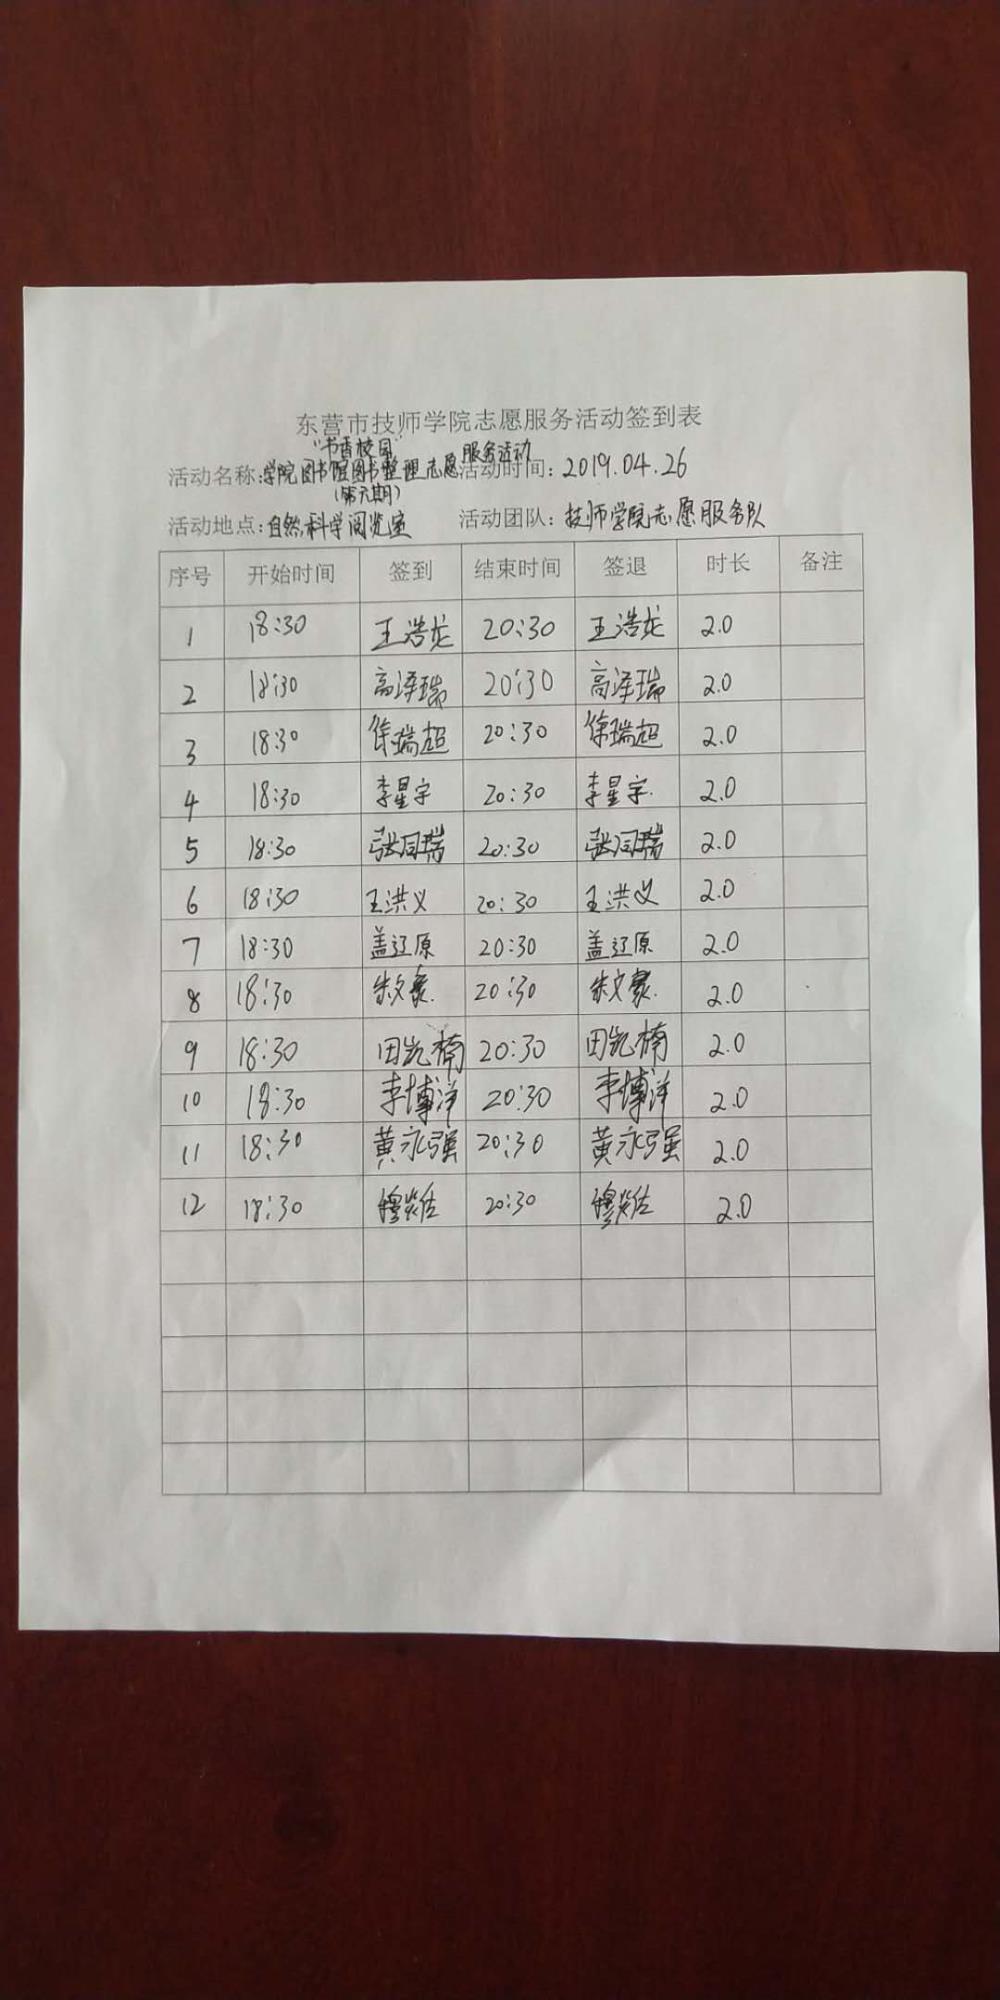 东营市技师学院志愿服务活动签到表
"书香校园"
活动名称:学院图书馆图书整理志愿服务活动 活动时间:2019.04.26
活动地点:自然科学阅览室 活动团队:技师学院志愿服务队
序号 开始时间 签到 结束时间 签退 时长 备注
1 18:30 王浩龙 20:30 王浩龙 2.0
2 18:30 高泽瑞 20:30 高泽瑞 2.0
3 18:30 徐瑞超 20:30 徐瑞超 2.0
4 18:30 李星宇 20:30 李星宇. 2.0
5 18:30 张同瑞 20:30 张同瑞 2.0
6 18:30 王洪义 20:30 王洪义 2.0
7 18:30 盖辽原 20:30 盖辽原 2.0
8 18:30 朱文豪. 20:30 朱文豪. 2.0
9 18:30 田凯楠 20:30 田凯楠 2.0
10 18:30 李博洋 20:30 李博洋 2.0
11 18:30 黄永强 20:30 黄永强 2.0
12 18:30 20:30 2.0